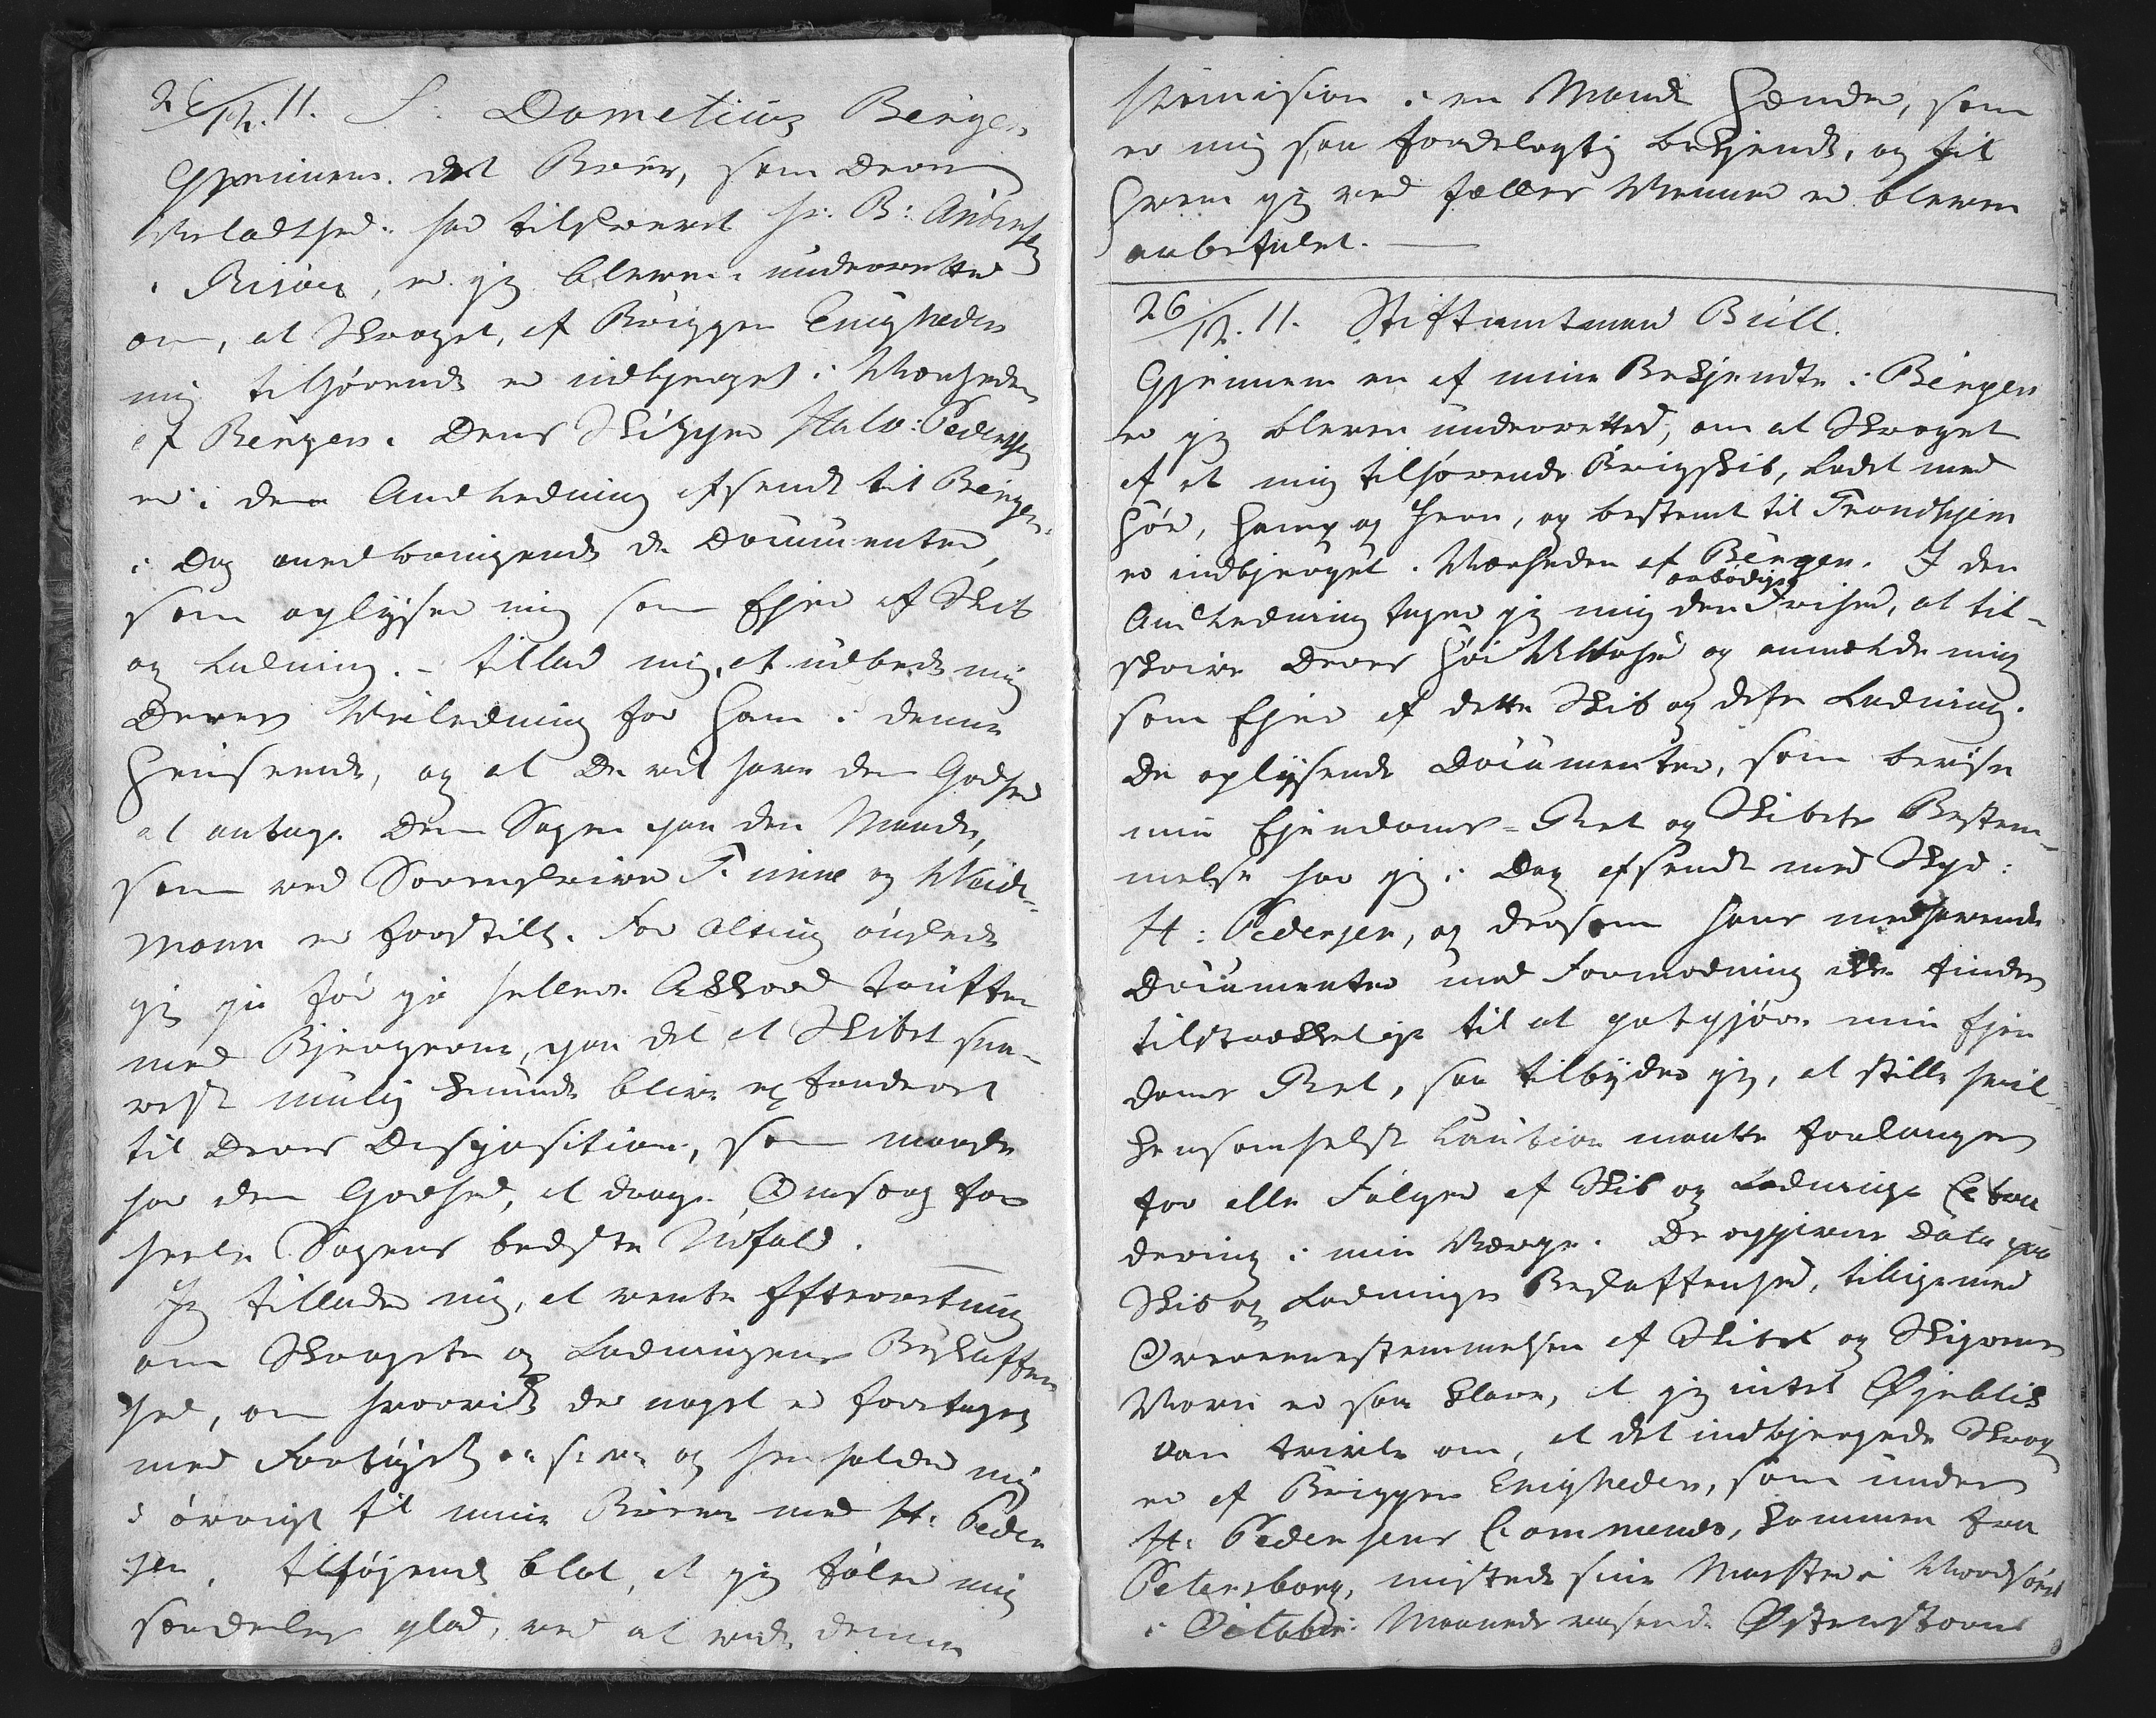 26/12. 11. S: Dometius Bergen
Gjennem det Brev, som Deres
Velædlhed. har tilskrevet Hr: B: Andersen
i Riisøer, er jeg bleven underrettet
om, at Skroget af Briggen Enigheden
mig tilhørende er indbjerget i Nærheden
af Bergen. Dens Skipper Halv: Pedersen
er i den Anledning afsendt til Bergen
i Dag medbringende de Documenter,
som oplyser mig som Ejer af Skib
og Ladning. - Tillad mig, at udbede mig
Deres Veiledning for Ham i denne
Henseende, og at De vil have den Godhed
at antage Dem Sagen paa den Maade,
som ved Sorenskriver Finne og Weide-
mann er forestilt. For Alting ønskede
jeg jo før jo hellere Akkord truffen
med Bjergerne, paa det at Skibet sna-
rest mulig kunde blive extraderet
til Deres Disposition, som maatte
have den Godhed, at drage Omsorg for
heele Sagens bedste Udfald.
Jeg tillader mig, at vente Efterretning
om Skrogets og Ladningens Beskaffen
hed, om hvorvidt der noget er foretaget
med og henholder mig
i øvrigt til mine Breve med H: Peder
sen, tilføjende blot, at jeg føler mig
særdeles glad, ved at vide denne
Kommission i en Mands Hænder, som
er mig saa fordelagtig bekjendt, og til
Hvem jeg ved fælles Venner er bleven
anbefalet. —
26/12. 11. Stiftamtmand Bull.
Gjennem en af mine Bekjendte i Bergen
er jeg bleven underrettet, om at Skroget
af et mig tilhørende Brigskib, ladet med
Hør, Hamp og Jern, og bestemt til Trondhjem
er indbjerget i Nærheden af Bergen. I den
Anledning tager jeg mig den ærbødigst Frihed, at til-
skrive Deres Høi Velbhr og anmelde mig
som Ejer af dette Skib og dets Ladning.
De oplysende Documenter, som bevise
min Ejendoms-Ret og Skibets Bestem-
melse har jeg i Dag afsendt med Skpr:
H: Pedersen, og dersom hans medhavende
Documenter mod Formodning ikke findes
tilstrækkelige til at godtgjøre min Ejen
doms Ret, saa tilbyder jeg, at stille hvil-
kensomhelst Caution maatte forlanges
for alle Følger af Skib og Ladnings Extra
dering i min Værge. De opgivne Data paa
Skib og Ladnings Beskaffenhed, tilligemed
Overeenstemmelsen af Skibet og Skipperens
Navn er saa klare, at jeg intet Øjeblik
kan tvivle om, at det indbjergede Skrog
er af Briggen Enigheden, som under
H: Pedersens Commando, kommen fra
Petersborg, mistede sine Master i Nordsøen
i October Maaneds rasende Østenstorme